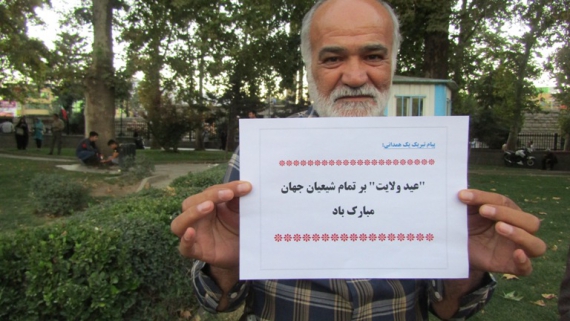 پیام تبریک یک همدانی:
"عید ولایت" بر تمام شیعیان جهان
مبارک باد